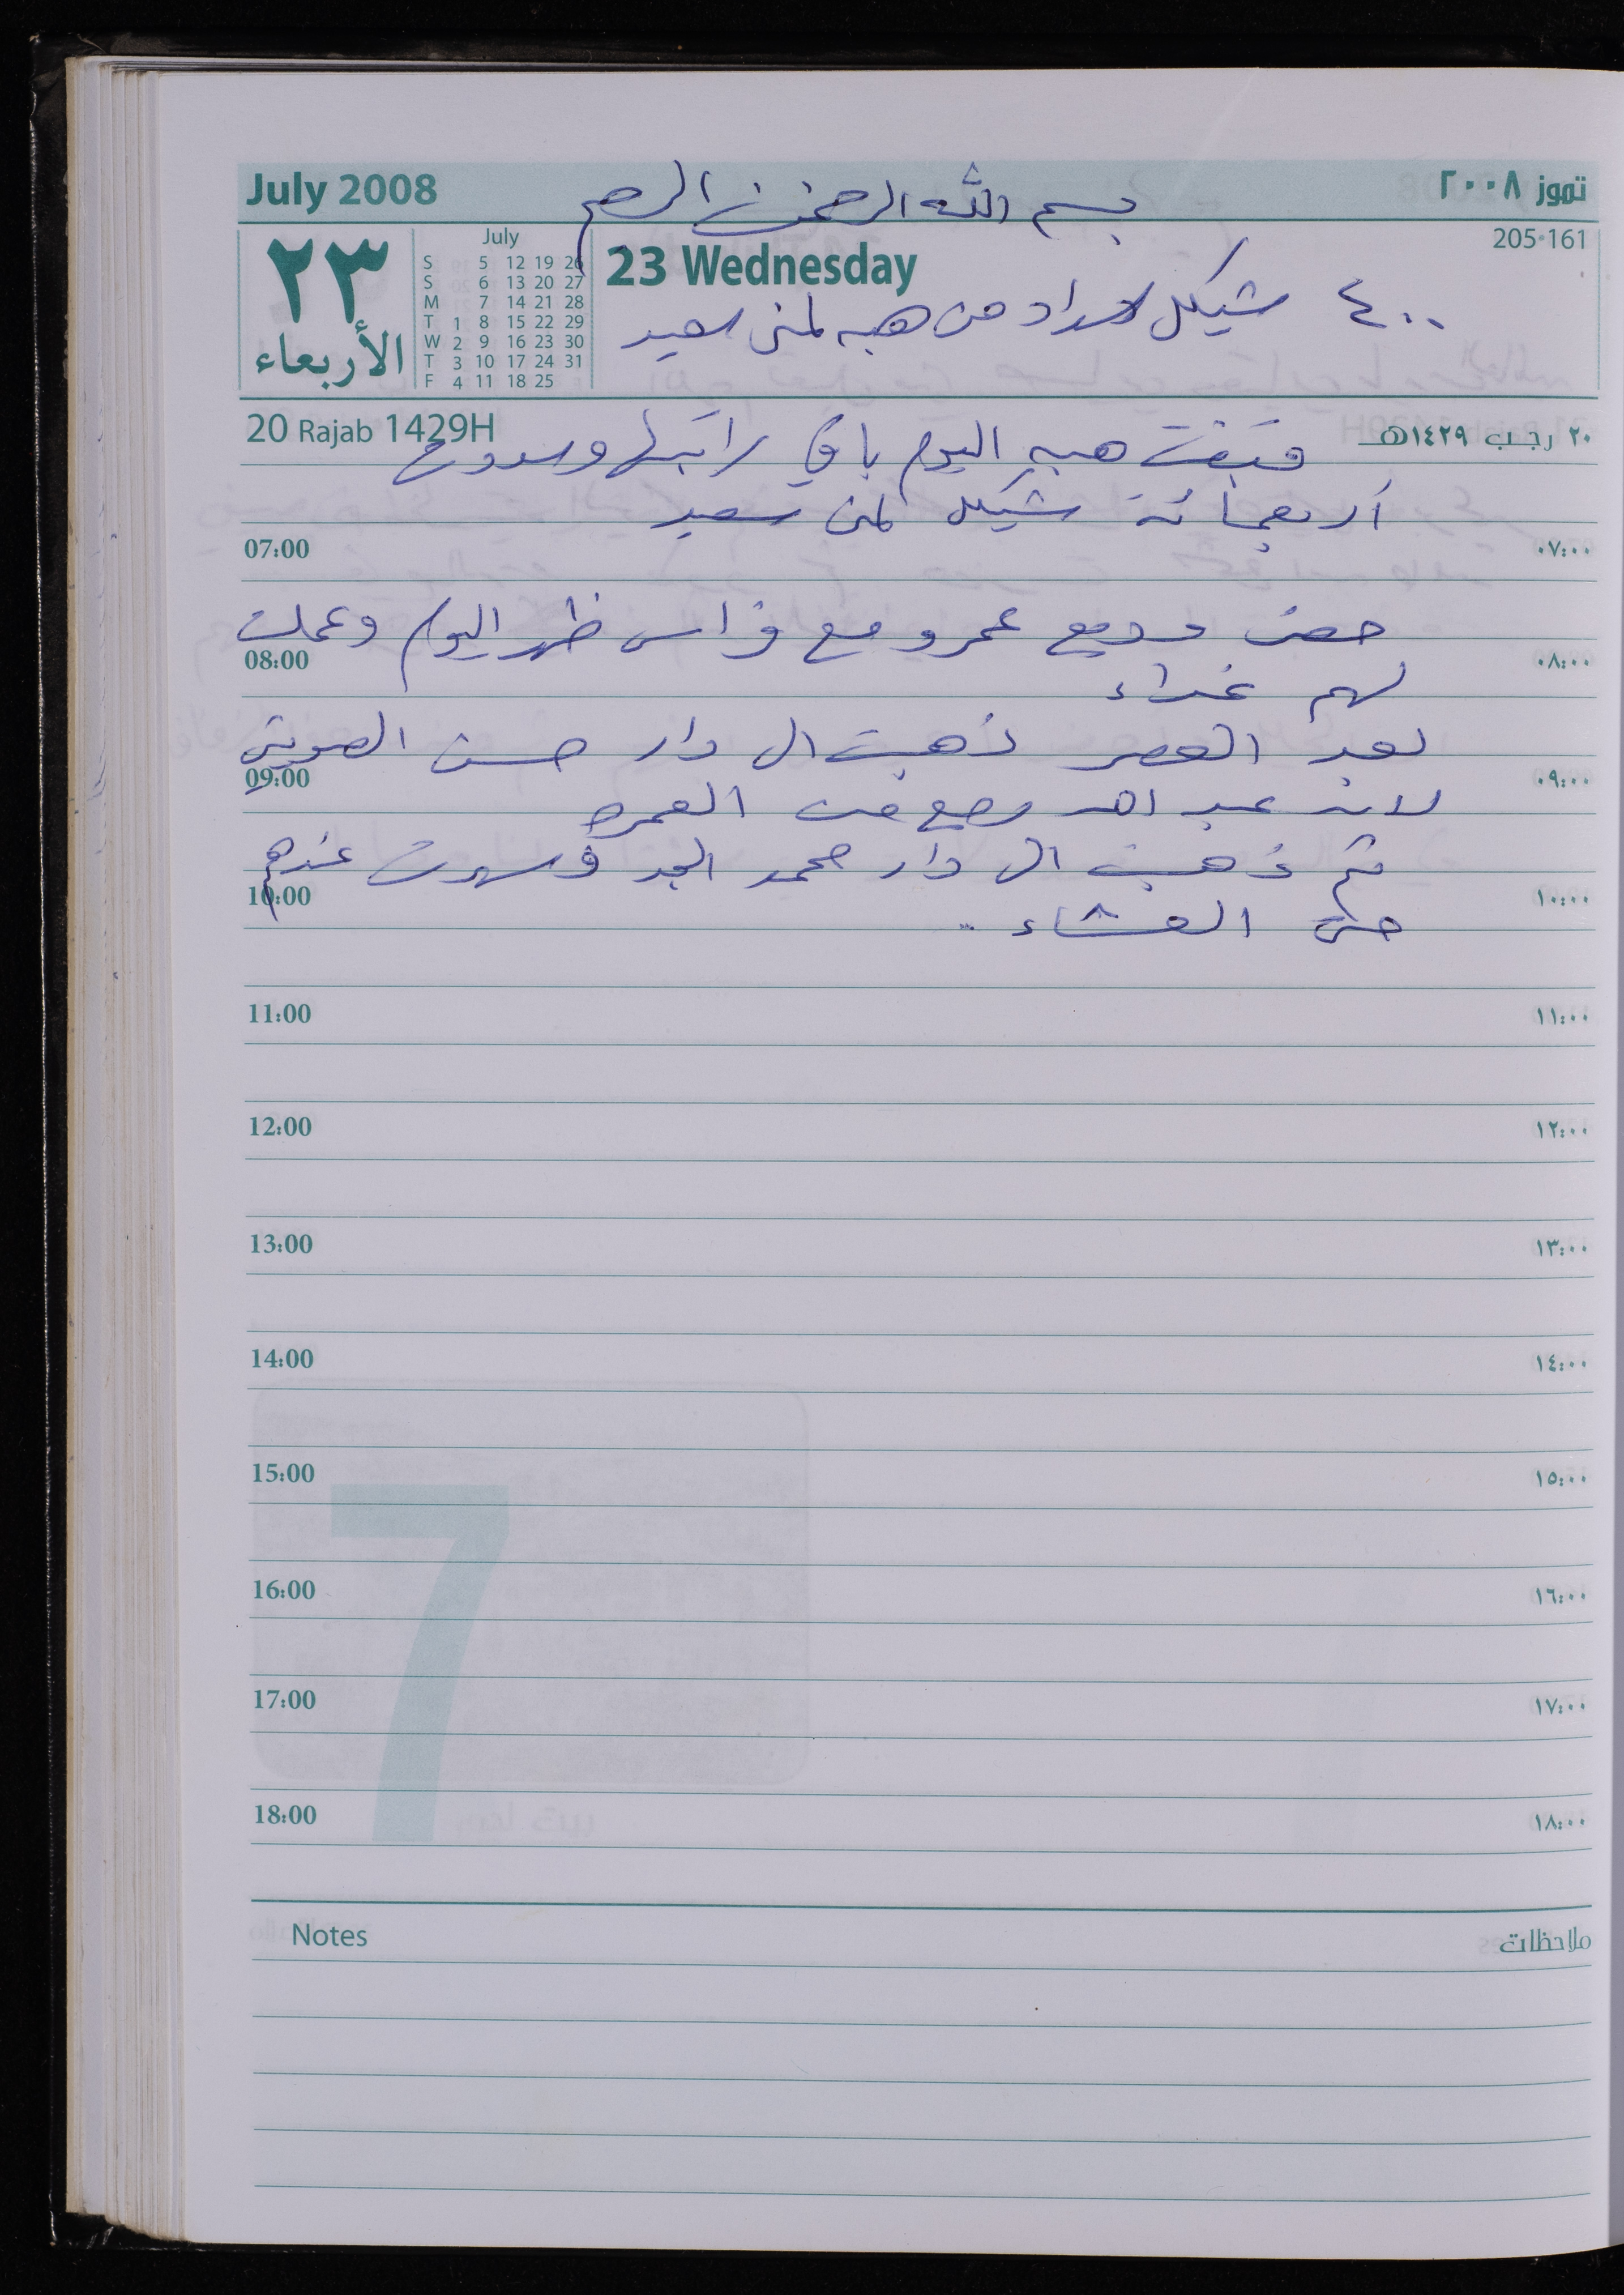 July 2008
بسم الله الرحمن الرحيم
تموز ٢٠٠٨
205-161
٢٣
الأربعاء
July
S 5 12 19 26
S 6 13 20 27
M 7 14 21 28
T 1 8 15 22 29
W 2 9 16 23 30
T 3 10 17 24 31
F 4 11 18 25
23 Wednesday
٤٠٠ شيكل سداد من هبه لمنى سعيد
20 Rajab 1429H
٢٠ رجب ١٤٢٩هـ
قبضت هبه اليوم باقي راتبها
أربعمائة شيكل لمنى سعيد
07:00 ٠٧:٠٠
حضر وديع عمرو مع فراس ظهر اليوم وعملت
08:00 ٠٨:٠٠
لهم غداء
بعد العصر ذهبت الى دار حسن الصويتي
09:00 ٠٩:٠٠
لان عبد الله رجع من العمره
ثم ذهبت الى دار محمد الجد وسهرت عندهم
10:00 ١٠:٠٠
حتى العشاء ..
11:00 ١١:٠٠
12:00 ١٢:٠٠
13:00 ١٣:٠٠
14:00 ١٤:٠٠
15:00 ١٥:٠٠
16:00 ١٦:٠٠
17:00 ١٧:٠٠
18:00 ١٨:٠٠
Notes ملاحظات